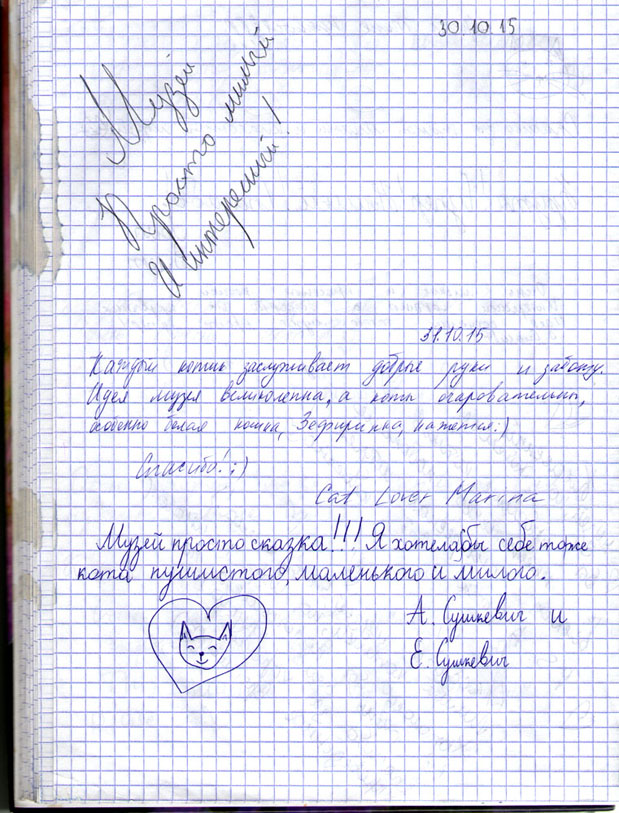 30.10.15
Музей
Просто милый
И интересный!
31.10.15
Каждый котик заслуживает добрые руки и заботу.
Идея музея великолепна, а коты очаровательны,
особенно белая кошка, Зефиринка, кажется:)
Спасибо! :)
Cat Lover Marina
Музей просто сказка!!! Я хотела бы себе тоже
кота пушистого, маленького и милого.
А. Сушкевич и
Е. Сушкевич